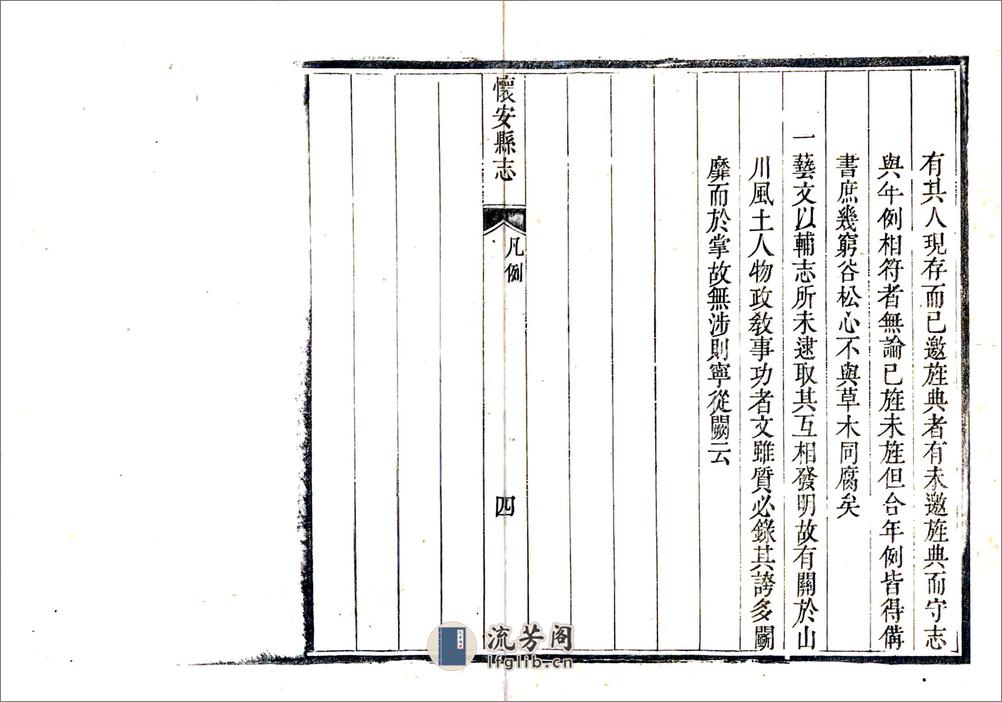 有其人現存而已邀旌典者有未邀旌典而守志
與年例相符者無論已旌未旌但合年例皆得備
書庶幾窮谷松心不與草木同腐矣
一藝文以輔志所未逮取其互相發明故有關於山
川風土人物政敎事功者文雖質必錄其誇多鬭
靡而於掌故無涉則寧從闕云
懷安縣志
凡例
四
流芳阁
lfglib.cn